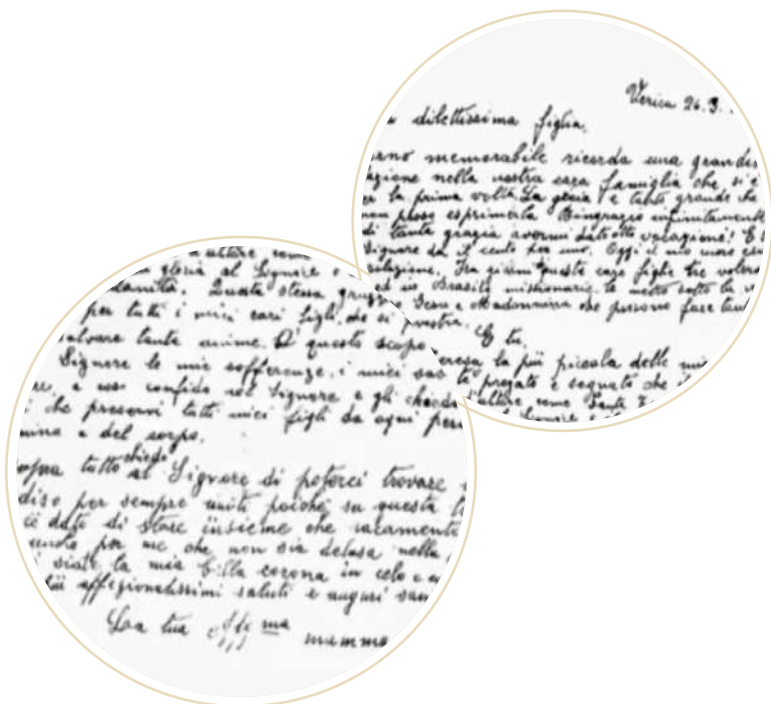 Verica 26.3.
dilettissima figlia,
memorabile ricorda una grandis
nella nostra cara famiglia che si è
la prima volta. La gioia è tanto grande che
non posso esprimerla Ringrazio infinitamente
di tanta grazia avermi dato otto vocazioni! E
Signore da il cento per uno. Oggi il mio cuore
Fra giorni queste care figlie tre
ed in Brasile missionarie le metto sotto la
Gesù e Madonnina che possono fare tan
E tu,
eresa, la più piccola delle mi
pregate e seguate che
altare come Santa
altare come
gloria al Signore e
Questa stessa grazia
per tutti i miei cari figli, che si
salvare tante anime. A questo scopo
Signore le mie sofferenze, i miei sac
e confido nel Signore e gli chiedo
che preservi tutti miei figli da ogni peri
e del corpo.
sopra tutto chiedo al Signore di poterci trovare
diso per sempre uniti poiché su questa
dato di stare insieme che raramente
per me che non sia delusa nella
siate la mia bella corona in celo e
affezionatissimi saluti e auguri
Loa tua aff.ma mamma